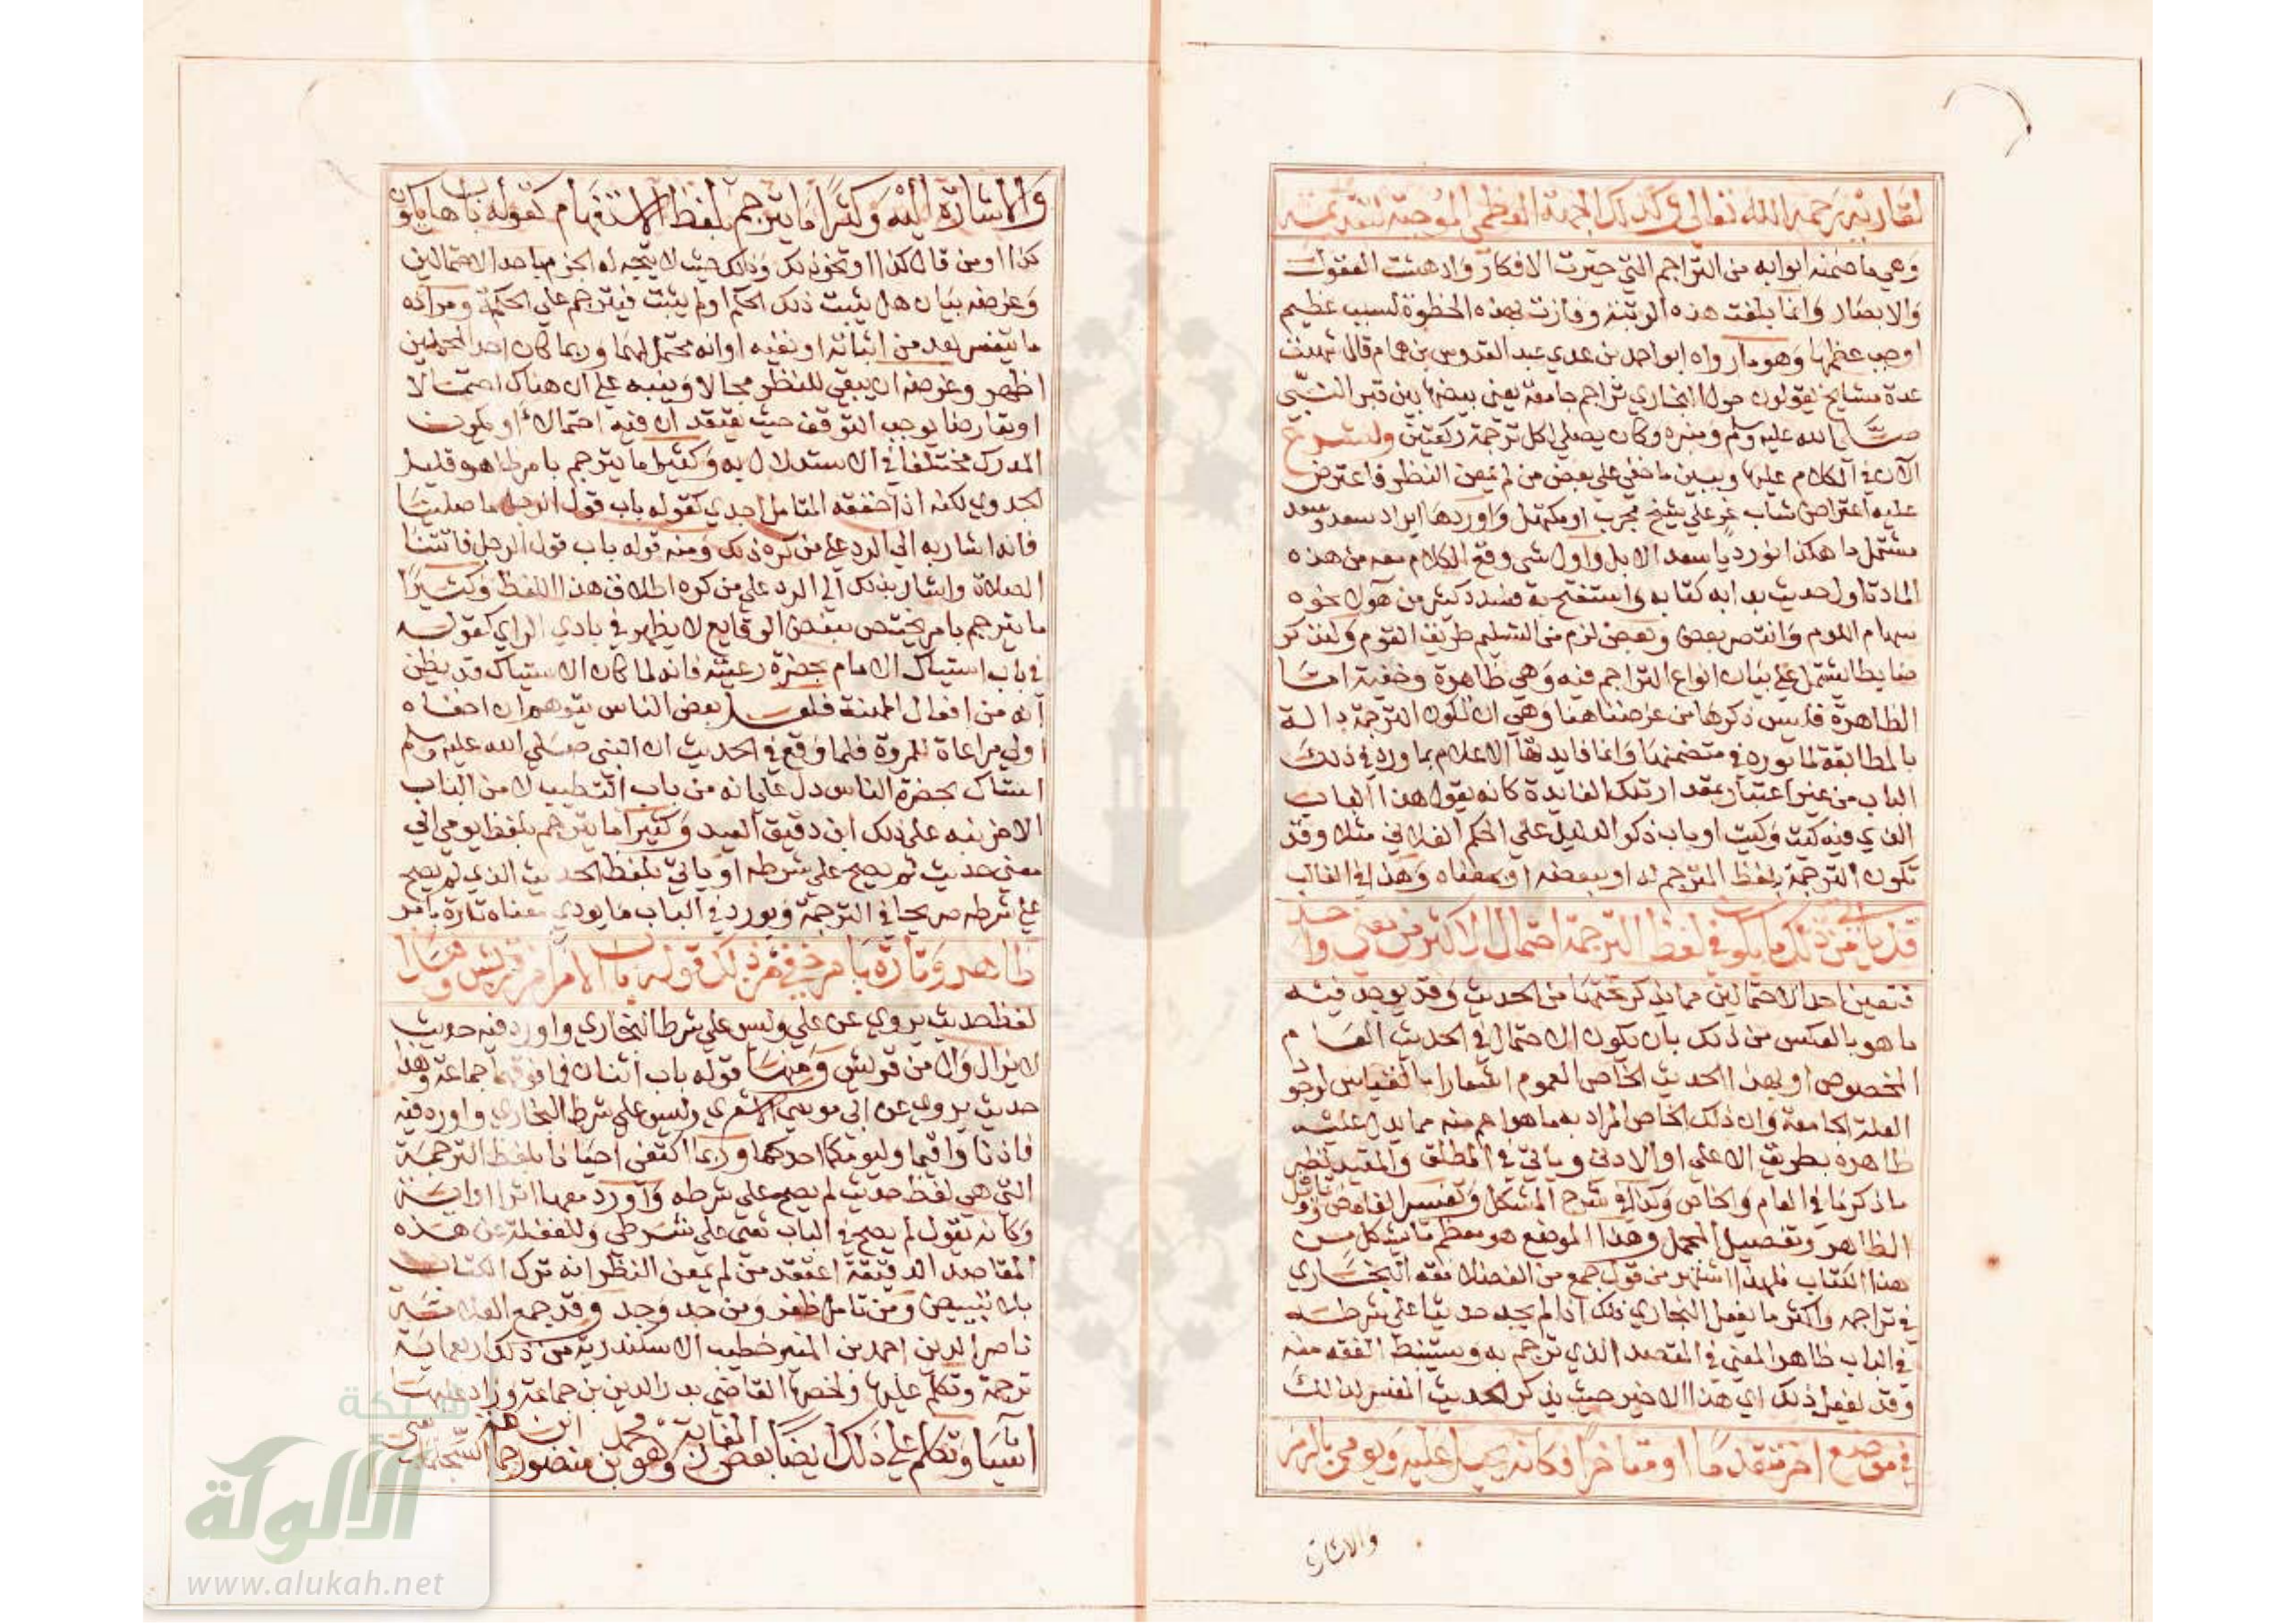 لقاريه رحمه الله تعالى وكذلك الجهة العظمى الموجبة لتقديمه
وهي ما ضمنه ابوابه من التراجم التي حيرت الافكار وادهشت العقول
والابصار وانما بلغت هذه الرتبة وفازت بهذه الحظوة لسبب عظيم
اوجب عظمها وهو ما رواه ابو احمد بن عدي عبد القدوس بن همام قال شهدت
عدة مشايخ يقولون حول البخاري تراجم جامعه يعني بيضها بين قبر النبي
صلى الله عليه وسلم ومنبره وكان يصلي لكل ترجمة ركعتين ولنشرع
الان في الكلام عليها ويبين ما خفي على بعض من لم يمعن النظر فاعترض
عليه اعتراض شاب غر على شيخ مجرب او مكتهل واوردها ايراد سعد وسعد
مشتمل ما هكذا تورد يا سعد الابل واول شي وقع الكلام معه من هذه
المادة اول حديث بدا به كتابه واستفتح به فسدد كثير من هولا نحوه
سهام اللوم وانتصر بعض وبعض لزم من التسليم طريق القوم ولنذكر
ضابطا يشتمل على بيان انواع التراجم فيه وهي ظاهرة وخفية اما
الظاهرة فليس ذكرها من غرضنا هنا وهي ان تكون الترجمة دالة
بالمطابقة لما يورده في متضمنها وانما فايدتها الاعلام بما ورد في ذلك
الباب من غير اعتبار بمقدار تلك الفايدة كانه يقول هذا الباب
الذي فيه كيت وكيت او باب ذكر الدليل على الحكم الفلاني مثلا وقد
تكون الترجمة بلفظ المترجم له او ببعضه او بمعناه وهذا في الغالب
قد ياتي من ذلك ما يكون في لفظ الترجمة احتمال لاكثر من معنى واحد
فتعين احد الاحتمالين مما يذكر تحتها من الحديث وقد يوجد فيه
ما هو بالعكس من ذلك بان يكون الاحتمال في الحديث العام
الخصوص او بهذا الحديث الخاص العموم اشعارا بالقياس لوجود
العلة الجامعة وان ذلك الخاص المراد به ما هو اعم منه مما يدل عليه
ظاهره بطريق الاعلى او الادنى وياتي في المطلق والمقيد نظير
ما ذكرنا في العام والخاص وكذا في شرح المشكل وتفسير الغامض وتاويل
الظاهر وتفصيل المجمل وهذا الموضع هو معظم ما يشكل من
هذا الكتاب فلهذا اشتهر من قول جمع من الفضلا فقه البخاري
في تراجمه واكثر ما يفعل البخاري ذلك اذا لم يجد حديثا على شرطه
في الباب ظاهر المعنى في المقصد الذي ترجم به ويستنبط الفقه منه
وقد يفعل ذلك اي هذا الاخير حيث يذكر الحديث المفسر لذلك
في موضع اخر متقدما او متاخرا فكانه يحيل عليه ويومي بالرمز
والاشارة
والاشارة اليه وكثيرا ما يترجم بلفظ الاستفهام كقوله باب هل يكون
كذا او من قال كذا او نحو ذلك وذلك حيث لا يتجه له الجزم باحد الاحتمالين
وغرضه بيان هل يثبت ذلك الحكم او لم يثبت فيترجم على الحكمة ومراده
ما يتفسر بعد من اثباته او نفيه او انه محتمل لهما وربما كان احد المحتملين
اظهر وغرضه ان يبقى للنظر مجالا وينبه على ان هناك احتمالا
او تعارضا يوجب التوقف حيث يعتقد ان فيه احتمالا او يكون
المدرك مختلفا في الاستدلال به وكثيرا ما يترجم بامر ظاهره قليل
الجدوى لكنه اذا حققه المتامل اجدى كقوله باب قول الرجل ما صلينا
فانه اشار به الى الرد على من كره ذلك ومنه قوله باب قول الرجل فاتتنا
الصلاة واشار بذلك الى الرد على من كره اطلاق هذا اللفظ وكثيرا
ما يترجم بامر يختص ببعض الوقايع لا يظهر في بادي الراي كقوله
في باب استياك الامام بحضرة رعيته فانه لما كان الاستياك قد يظن
انه من افعال المهنة فلعل بعض الناس يتوهم ان اخفاه
اولى مراعاة للمروة فلما وقع في الحديث ان النبي صلى الله عليه وسلم
استاك بحضرة الناس دل على انه من باب التطيب لا من الباب
الاخر نبه على ذلك ابن دقيق العيد وكثيرا ما يترجم بلفظ يومي الى
معنى حديث لم يصح على شرطه او ياتي بلفظ الحديث الذي لم يصح
على شرطه صريحا في الترجمة ويورد في الباب ما يودي معناه تارة بامر
ظاهر وتارة بامر خفي فمن ذلك قوله باب الامرا من قريش وهذا
لفظ حديث يروى عن علي وليس على شرط البخاري واورد فيه حديث
لا يزال وال من قريش ومنها قوله باب اثنان فما فوقهما جماعة وهذا
حديث يروى عن ابي موسى الاشعري وليس على شرط البخاري واورد فيه
فاذنا واقيما وليؤمكما احدكما وربما اكتفى احيانا بلفظ الترجمة
التي هي لفظ حديث لم يصح على شرطه واورد معها اثرا او اية
وكانه يقول لم يصح في الباب شي على شرطي وللغفلة عن هذه
المقاصد الدقيقة اعتقد من لم يمعن النظر انه ترك الكتاب
بلا تبييض ومن تامل ظفر ومن جد وجد وقد جمع العلامة
ناصر الدين احمد بن المنير خطيب الاسكندرية من ذلك اربعماية
ترجمة وتكلم عليها ولخصها القاضي بدر الدين بن جماعة وزاد عليها
اشيا وتكلم على ذلك ايضا بعض المغاربة وهو محمد بن منصور ابن حمامة السجلماسي
شبكة
الألوكة
www.alukah.net